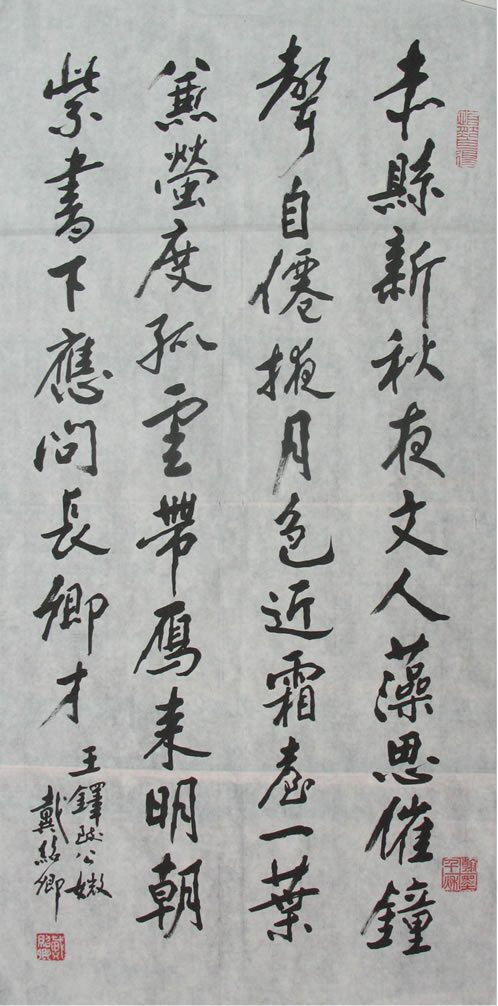 赤縣新秋夜文人藻思催鐘
聲自僊掖月色近霜臺一葉
兼螢度孤雲帶鴈来明朝
紫書下應問長卿才
王鐸 公
戴紹卿